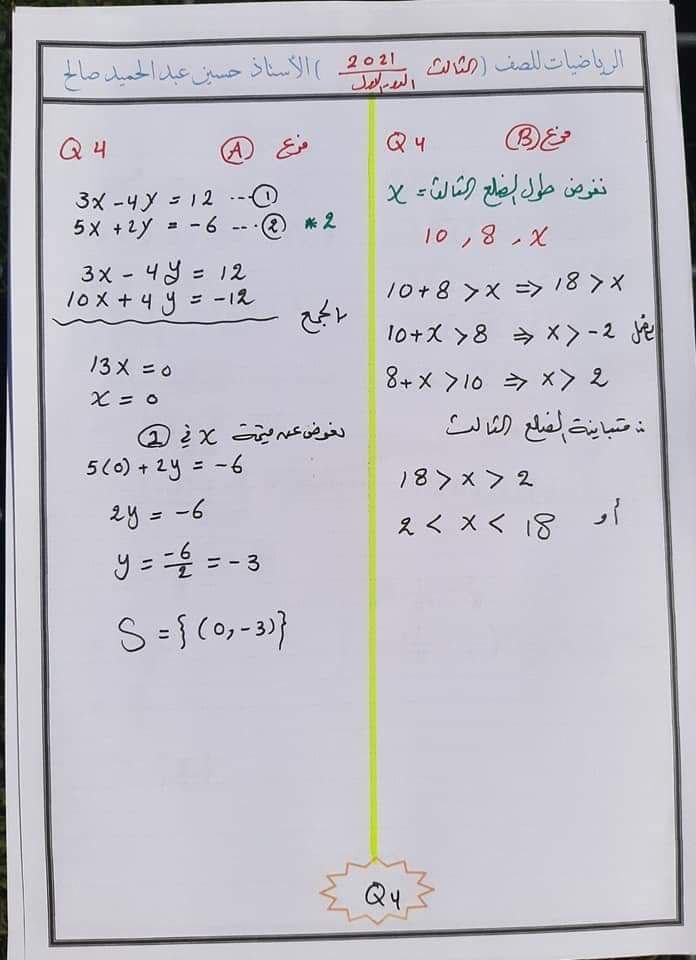 الرياضيات للصف (الثالث 2021 الدور الاول) الأستاذ حسين عبد الحميد صالح
Q4 فرع (B)
نفرض طول الضلع الثالث = x
10 , 8 , x
10+8 > x ⇒ 18 > x
10+x > 8 ⇒ x > -2 يهمل
8+x > 10 ⇒ x > 2
∴ متباينة الضلع الثالث
18 > x > 2
أو 2 < x < 18
Q4 فرع (A)
3x - 4y = 12 ---①
5x + 2y = -6 ---② *2
3x - 4y = 12
10x + 4y = -12
بالجمع
13x = 0
x = 0
نعوض عن قيمة x في ②
5(0) + 2y = -6
2y = -6
y = -6/2 = -3
S = {(0, -3)}
Q4